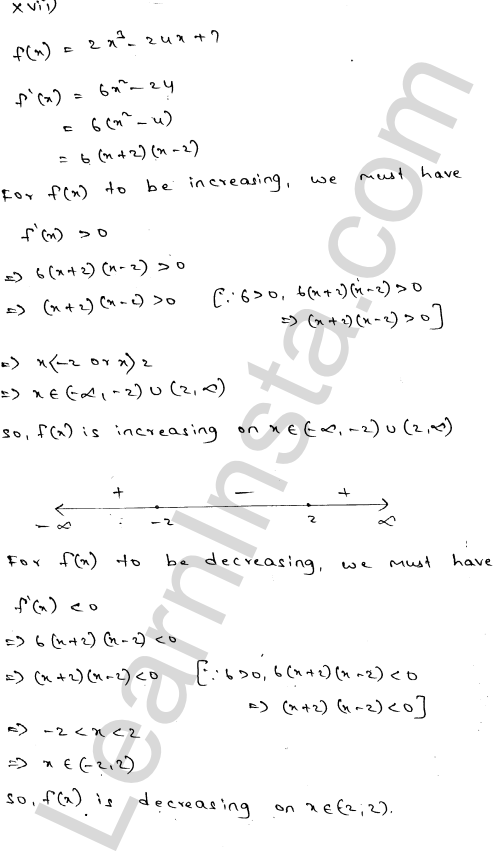 xvii)
f(x) = 2x³ - 24x + 7
f'(x) = 6x² - 24
= 6(x² - 4)
= 6(x+2)(x-2)
For f(x) to be increasing, we must have
f'(x) > 0
⇒ 6(x+2)(x-2) > 0
⇒ (x+2)(x-2) > 0 [∵ 6 > 0, 6(x+2)(x-2) > 0
⇒ (x+2)(x-2) > 0]
⇒ x < -2 or x > 2
⇒ x ∈ (-∞, -2) ∪ (2, ∞)
So, f(x) is increasing on x ∈ (-∞, -2) ∪ (2, ∞)
+ - +
-∞ -2 2 ∞
For f(x) to be decreasing, we must have
f'(x) < 0
⇒ 6(x+2)(x-2) < 0
⇒ (x+2)(x-2) < 0 [∵ 6 > 0, 6(x+2)(x-2) < 0
⇒ (x+2)(x-2) < 0]
⇒ -2 < x < 2
⇒ x ∈ (-2, 2)
So, f(x) is decreasing on x ∈ (-2, 2).
LearnInsta.com